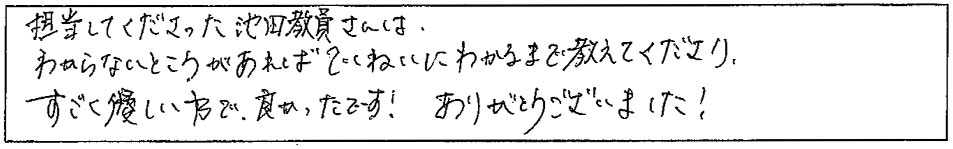 担当してくださった池田教員さんは、
わからないところがあればていねいにわかるまで教えてくださり、
すごく優しい方で、良かったです! ありがとうございました!